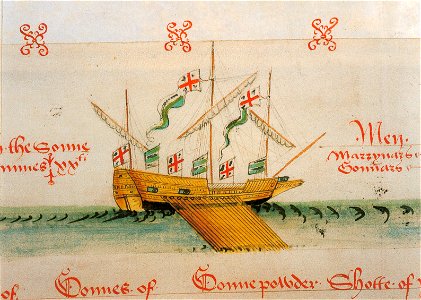 the Sonne
Men
Marrynars
Gonnars
Gonnes of
Gonnepowder Shotte of
of